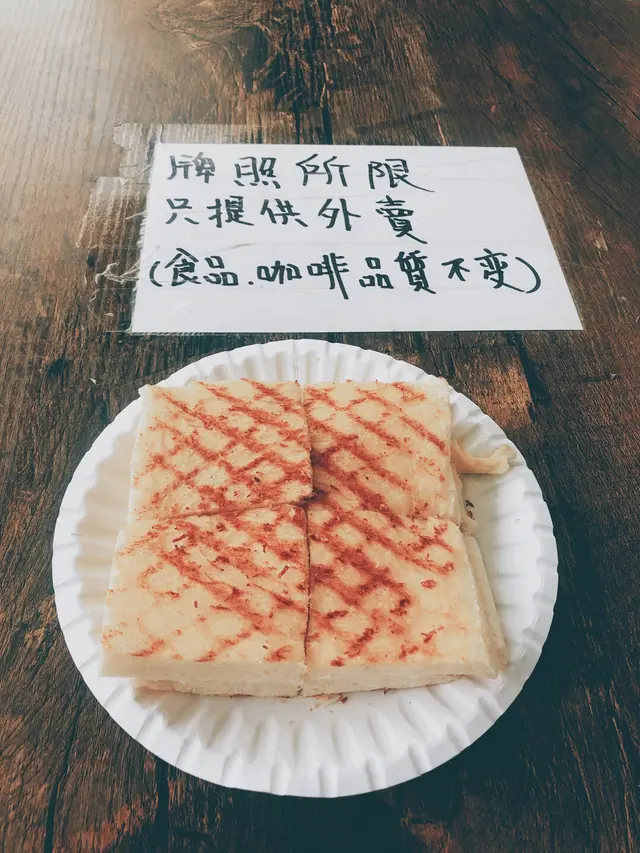 牌照所限
只提供外賣
(食品.咖啡品質不变)